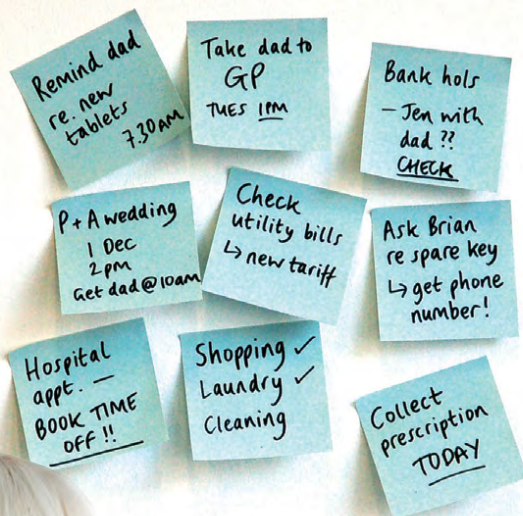 Remind dad
re. new
tablets
7.30AM
Take dad to
GP
TUES 1PM
Bank hols
- Jen with
dad ??
CHECK
P + A wedding
1 Dec
2pm
Get dad@10am
Check
utility bills
↳ new tariff
Ask Brian
re spare key
↳ get phone
number!
Hospital
appt. —
BOOK TIME
OFF !!
Shopping ✓
Laundry ✓
Cleaning
Collect
prescription
TODAY